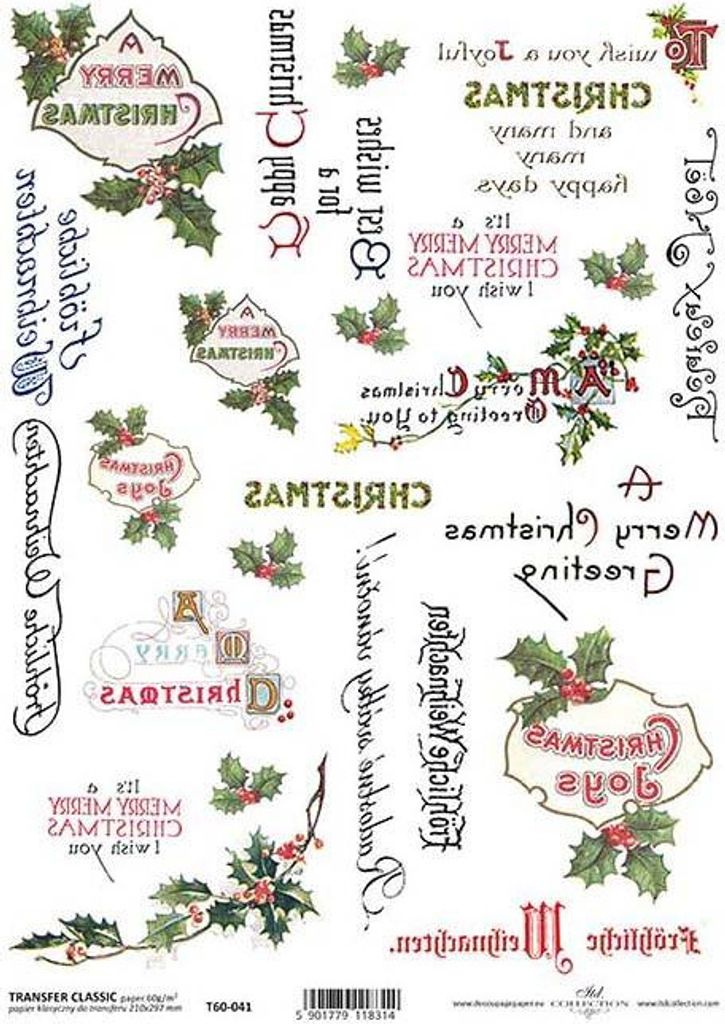 A
MERRY
CHRISTMAS
Best wishes
for a
Happy Christmas
To wish you a Joyful
CHRISTMAS
and many
many
happy days.
Fröhliche
Weihnachten
It's a
MERRY MERRY
CHRISTMAS
I wish you
A
MERRY
CHRISTMAS
A Merry Christmas
Greeting to You.
CHRISTMAS
JOYS
CHRISTMAS
A
Merry Christmas
Greeting
Fröhliche Weihnachten
A
MERRY
CHRISTMAS
Radostné svátky vánoční!
Fröhliche Weihnachten
CHRISTMAS
JOYS
It's a
MERRY MERRY
CHRISTMAS
I wish you
Fröhliche Weihnachten.
TRANSFER CLASSIC paper 60g/m²
papier klasyczny do transferu 210x297 mm
T60-041
5 901779 118314
www.decoupagepaper.eu
Itd.
COLLECTION
www.itdcollection.com